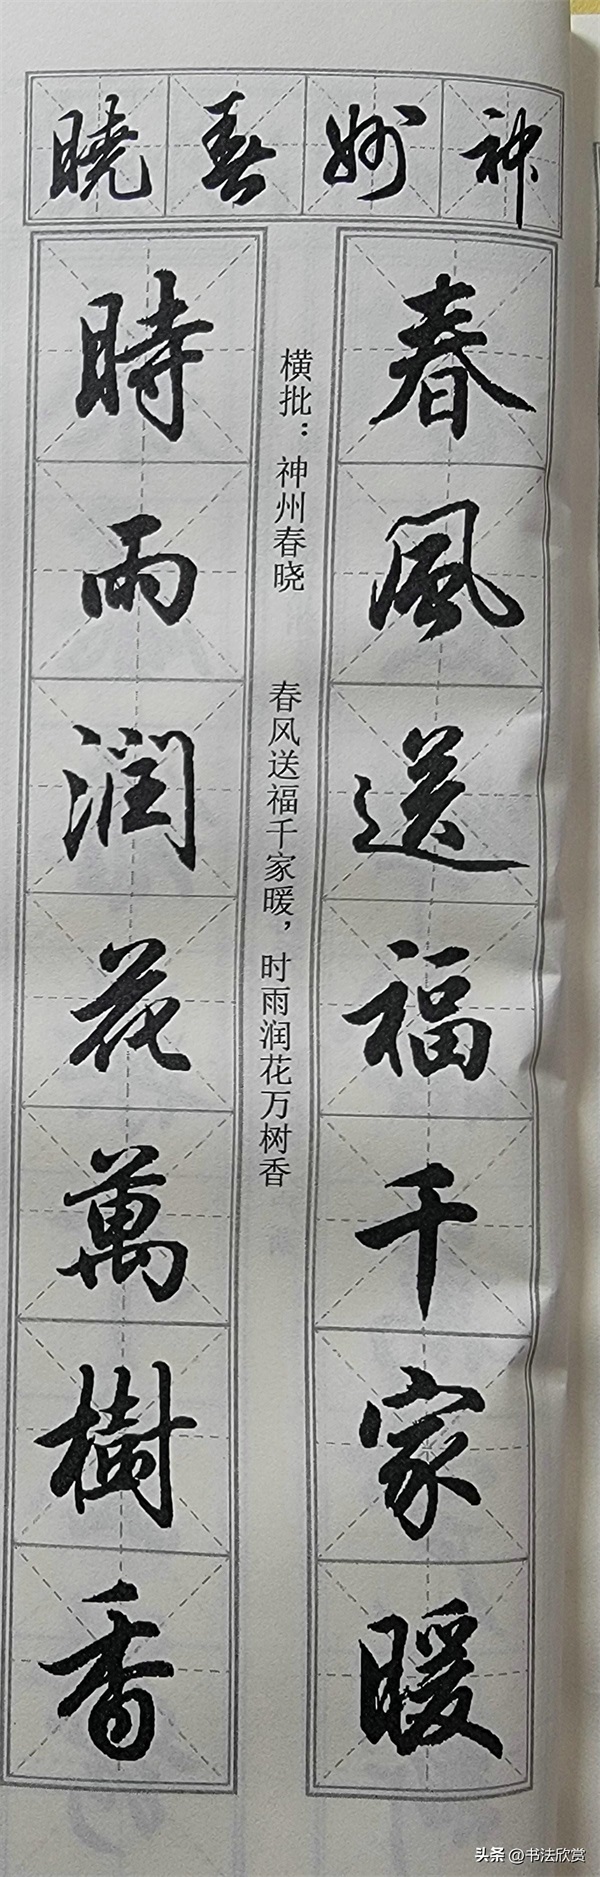 神州春曉
春風送福千家暖
横批：神州春晓
春风送福千家暖，时雨润花万树香
時雨潤花萬樹香
头条 @书法欣赏